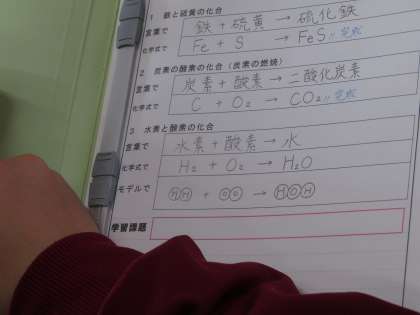 1 鉄と硫黄の化合
言葉で 鉄 + 硫黄 → 硫化鉄
化学式で Fe + S → FeS 〃完成
2 炭素の酸素の化合(炭素の燃焼)
言葉で 炭素 + 酸素 → 二酸化炭素
化学式で C + O₂ → CO₂ 〃完成
3 水素と酸素の化合
言葉で 水素 + 酸素 → 水
化学式で H₂ + O₂ → H₂O
モデルで ⒽⒽ + ⓄⓄ → ⒽⓄⒽ
学習課題